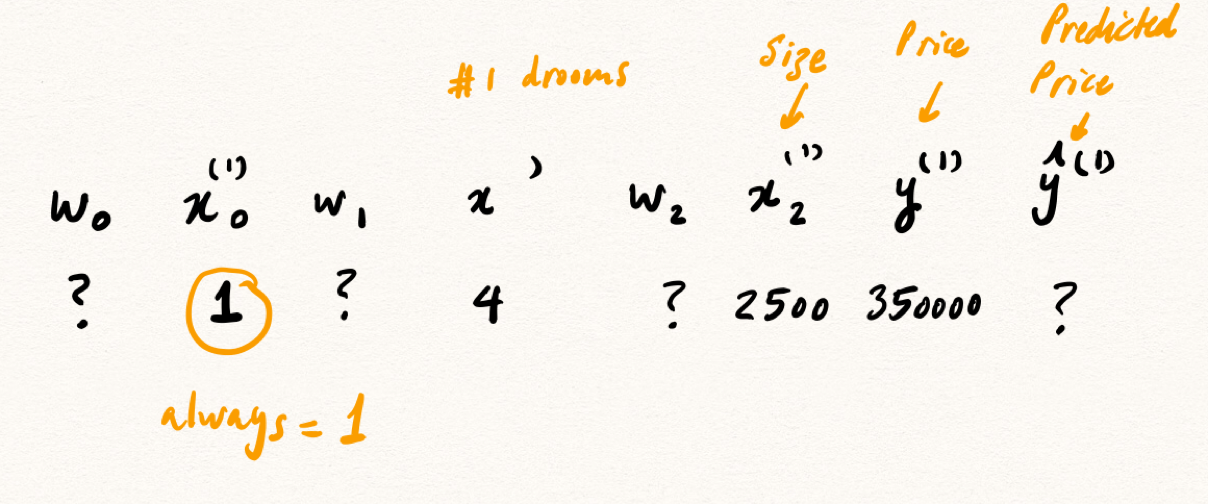 #1 drooms Size Price Predicted Price
w₀ x₀⁽¹⁾ w₁ x ⁾ w₂ x₂⁽¹⁾ y⁽¹⁾ ŷ⁽¹⁾
? 1 ? 4 ? 2500 350000 ?
always = 1